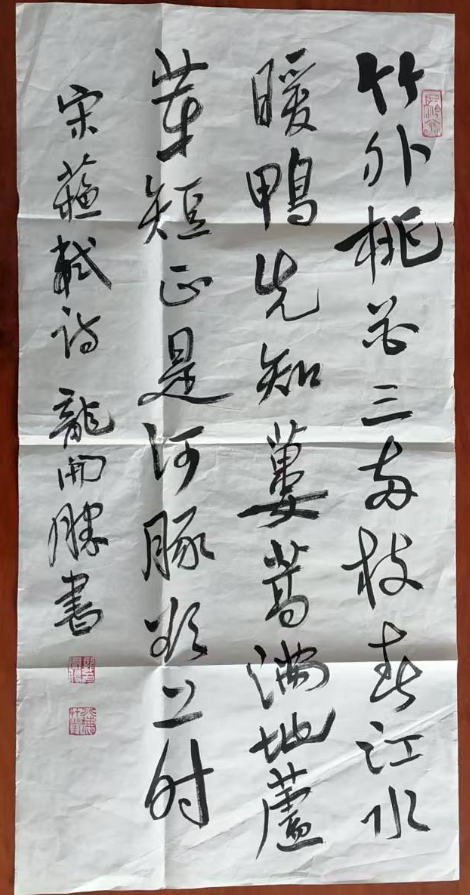 竹外桃花三两枝春江水
暖鴨先知蔞蒿滿地蘆
芽短正是河豚欲上时
宋蘇軾诗龍開勝書